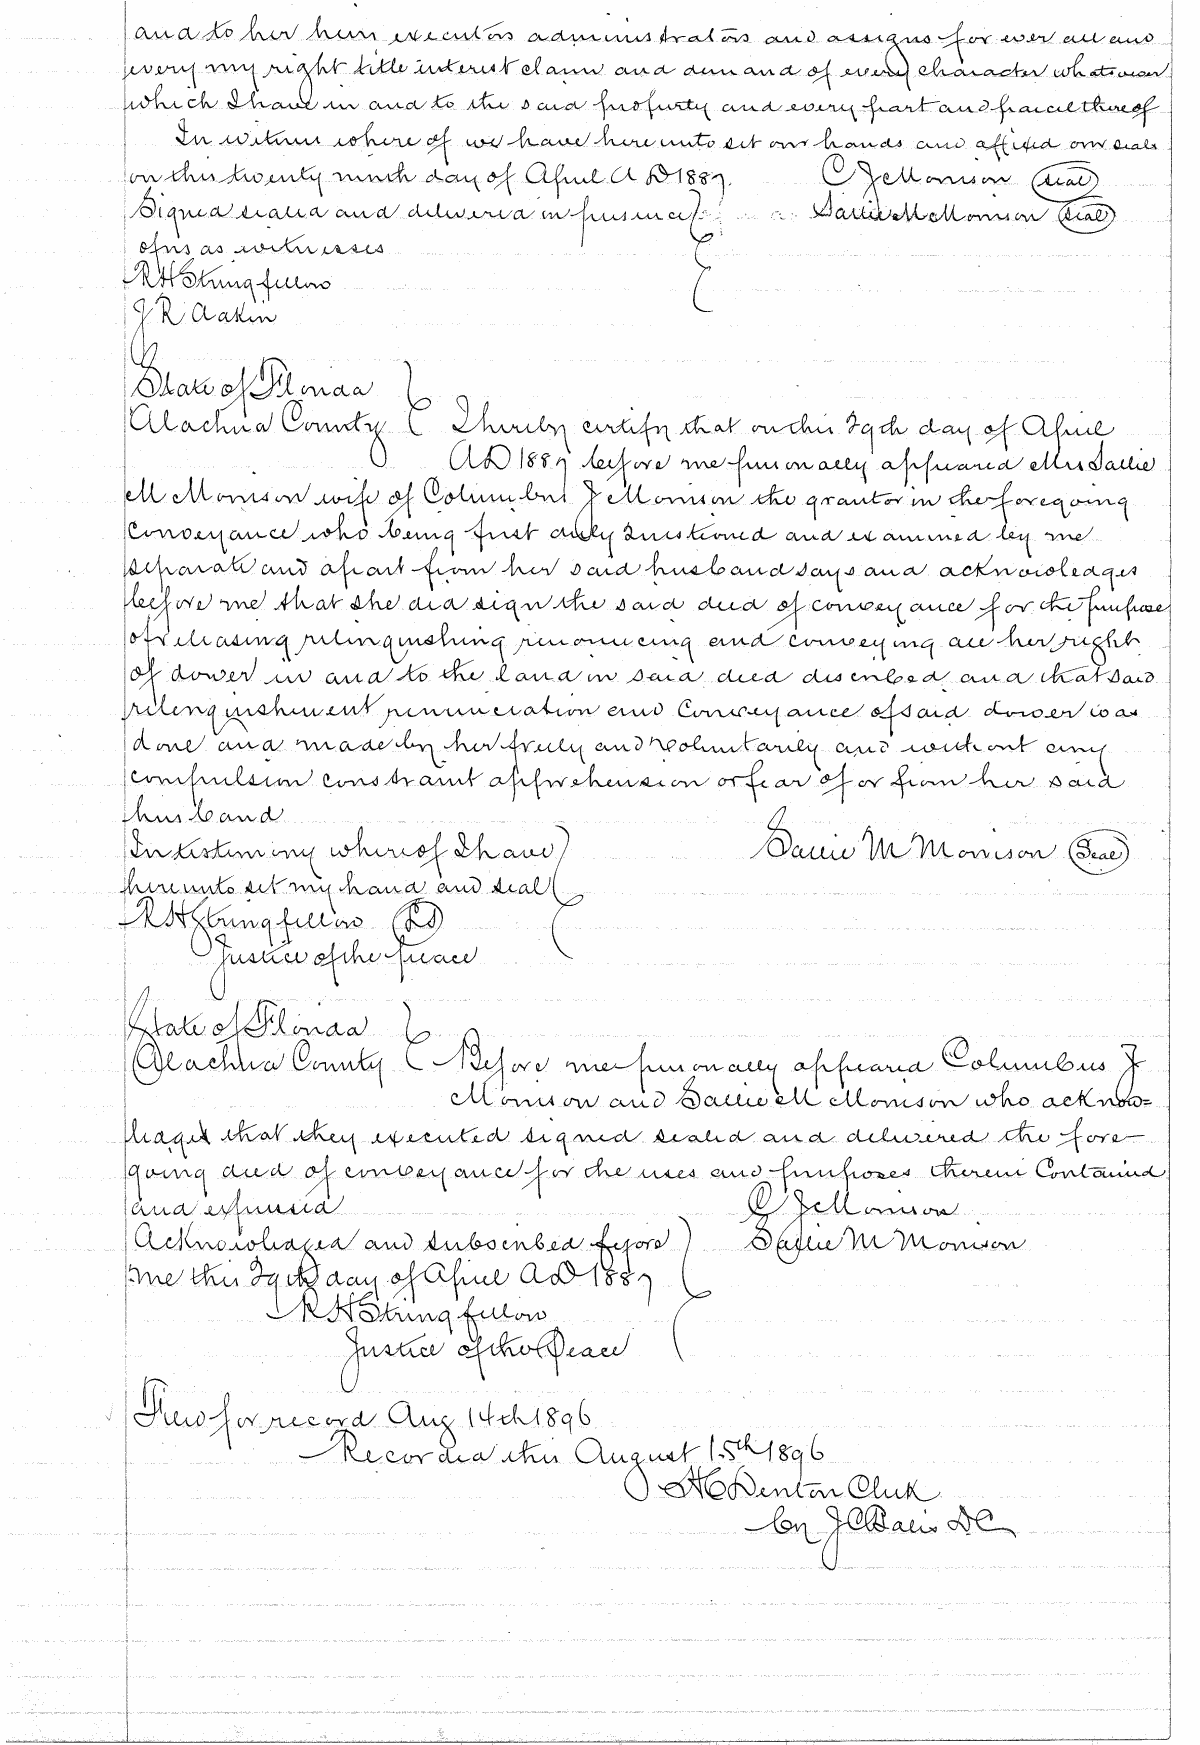 and to her heirs executors administrators and assigns for ever all and
every my right title interest claim and demand of every character whatsoever
which I have in and to the said property and every part and parcel thereof
In witness where of we have here unto set our hands and affixed our seals
on this twenty ninth day of April A D 1887. C J Morrison (seal)
Signed sealed and delivered in presence Sallie M Morrison (seal)
of us as witnesses
R H Stringfellow
J R Eakin
State of Florida
Alachua County I hereby certify that on this 29th day of April
AD 1887 before me personally appeared Mrs Sallie
M Morrison wife of Columbus J Morrison the grantor in the foregoing
conveyance who being first duly questioned and examined by me
separate and apart from her said husband says and acknowledges
before me that she did sign the said deed of conveyance for the purpose
of releasing relinquishing renouncing and conveying all her right
of dower in and to the land in said deed described and that said
relinquishment renunciation and Conveyance of said dower was
done and made by her freely and voluntarily and without any
compulsion constraint apprehension or fear of or from her said
husband
In testimony where of I have Sallie M Morrison (Seal)
here unto set my hand and seal
R H Stringfellow (LS)
Justice of the peace
State of Florida
Alachua County Before me personally appeared Columbus J
Morrison and Sallie M Morrison who acknow=
ledges that they executed signed sealed and delivered the fore-
going deed of conveyance for the uses and purposes therein Contained
and expressed C J Morrison
Acknowledged and subscribed before Sallie M Morrison
me this 29th day of April AD 1887
R H Stringfellow
Justice of the Peace
Filed for record Aug 14th 1896
Recorded this August 15th 1896
H C Denton Clerk
by J C DC